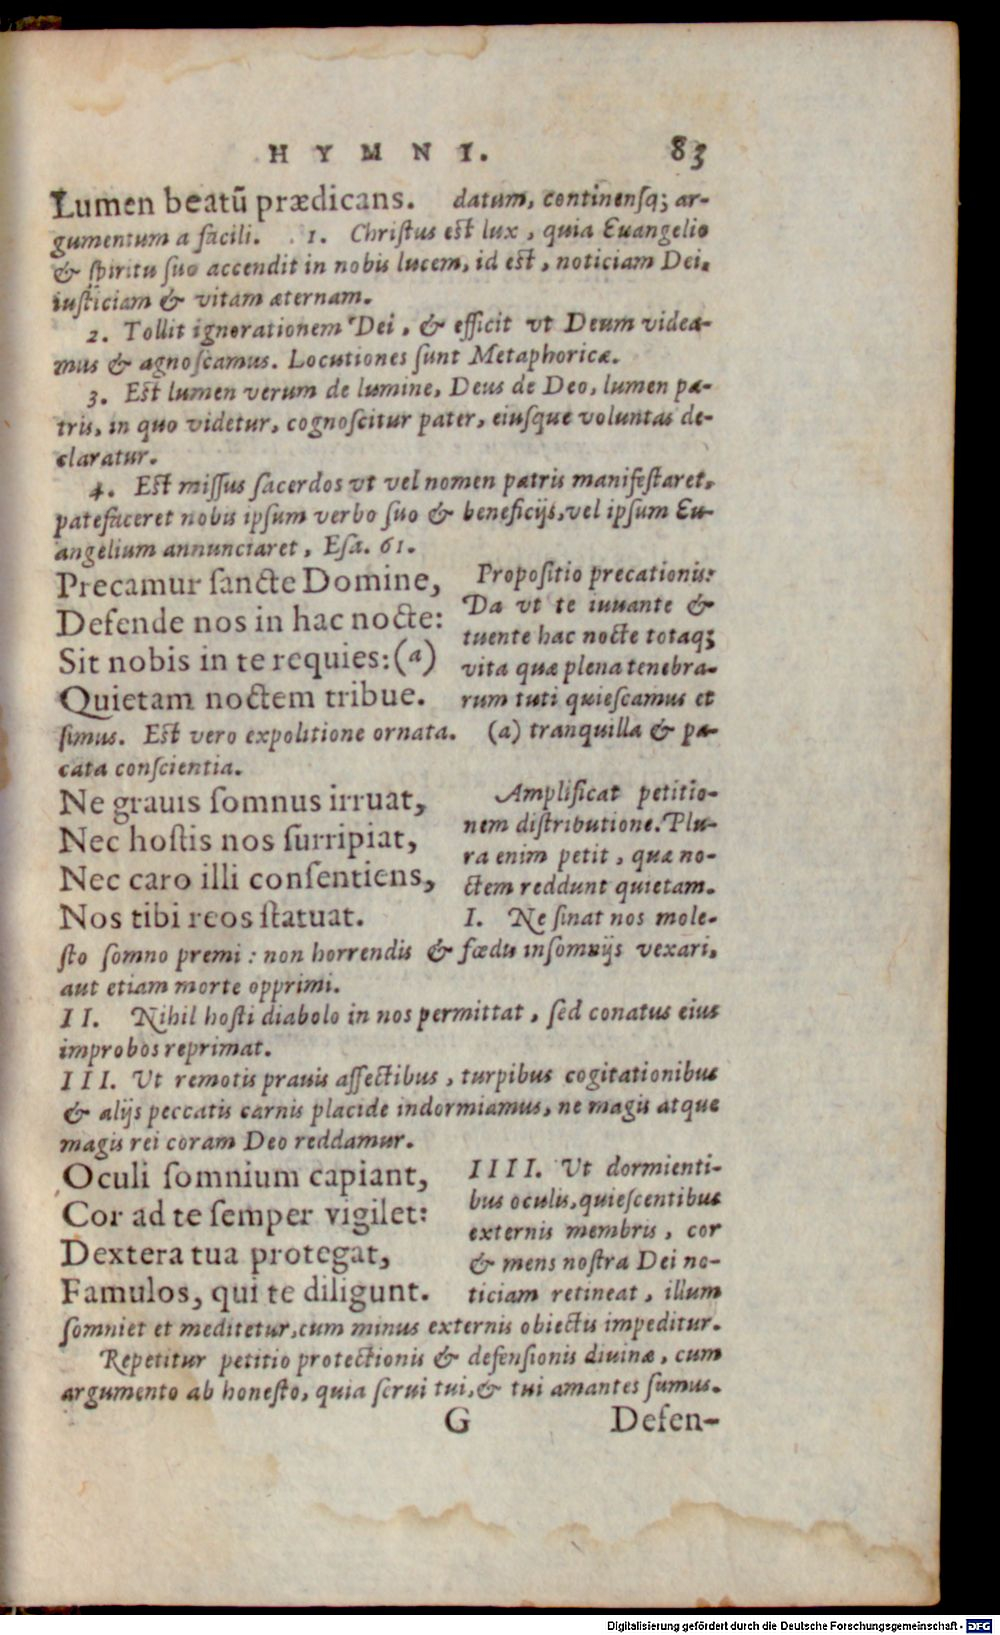 HYMNI. 83
Lumen beatū prædicans. datum, continensq; ar-
gumentum a facili. 1. Christus est lux, quia Euangelio
& spiritu suo accendit in nobis lucem, id est, noticiam Dei,
iusticiam & vitam æternam.
2. Tollit ignorationem Dei, & efficit vt Deum videa-
mus & agnoscamus. Locutiones sunt Metaphoricæ.
3. Est lumen verum de lumine, Deus de Deo, lumen pa-
tris, in quo videtur, cognoscitur pater, eiusque voluntas de-
claratur.
4. Est missus sacerdos vt vel nomen patris manifestaret,
patefaceret nobis ipsum verbo suo & beneficijs, vel ipsum Eu-
angelium annunciaret, Esa. 61.
Precamur sancte Domine,
Defende nos in hac nocte:
Sit nobis in te requies: (a)
Quietam noctem tribue.
Propositio precationis:
Da vt te iuuante &
tuente hac nocte totaq;
vita quæ plena tenebra-
rum tuti quiescamus et
simus. Est vero expolitione ornata. (a) tranquilla & pa-
cata conscientia.
Ne grauis somnus irruat,
Nec hostis nos surripiat,
Nec caro illi consentiens,
Nos tibi reos statuat.
Amplificat petitio-
nem distributione. Plu-
ra enim petit, quæ no-
ctem reddunt quietam.
I. Ne sinat nos mole-
sto somno premi: non horrendis & fœdis insomnijs vexari,
aut etiam morte opprimi.
II. Nihil hosti diabolo in nos permittat, sed conatus eius
improbos reprimat.
III. Vt remotis prauis affectibus, turpibus cogitationibus
& alijs peccatis carnis placide indormiamus, ne magis atque
magis rei coram Deo reddamur.
Oculi somnium capiant,
Cor ad te semper vigilet:
Dextera tua protegat,
Famulos, qui te diligunt.
IIII. Vt dormienti-
bus oculis, quiescentibus
externis membris, cor
& mens nostra Dei no-
ticiam retineat, illum
somniet et meditetur, cum minus externis obiectis impeditur.
Repetitur petitio protectionis & defensionis diuinæ, cum
argumento ab honesto, quia serui tui, & tui amantes sumus.
G Defen-
Digitalisierung gefördert durch die Deutsche Forschungsgemeinschaft - DFG